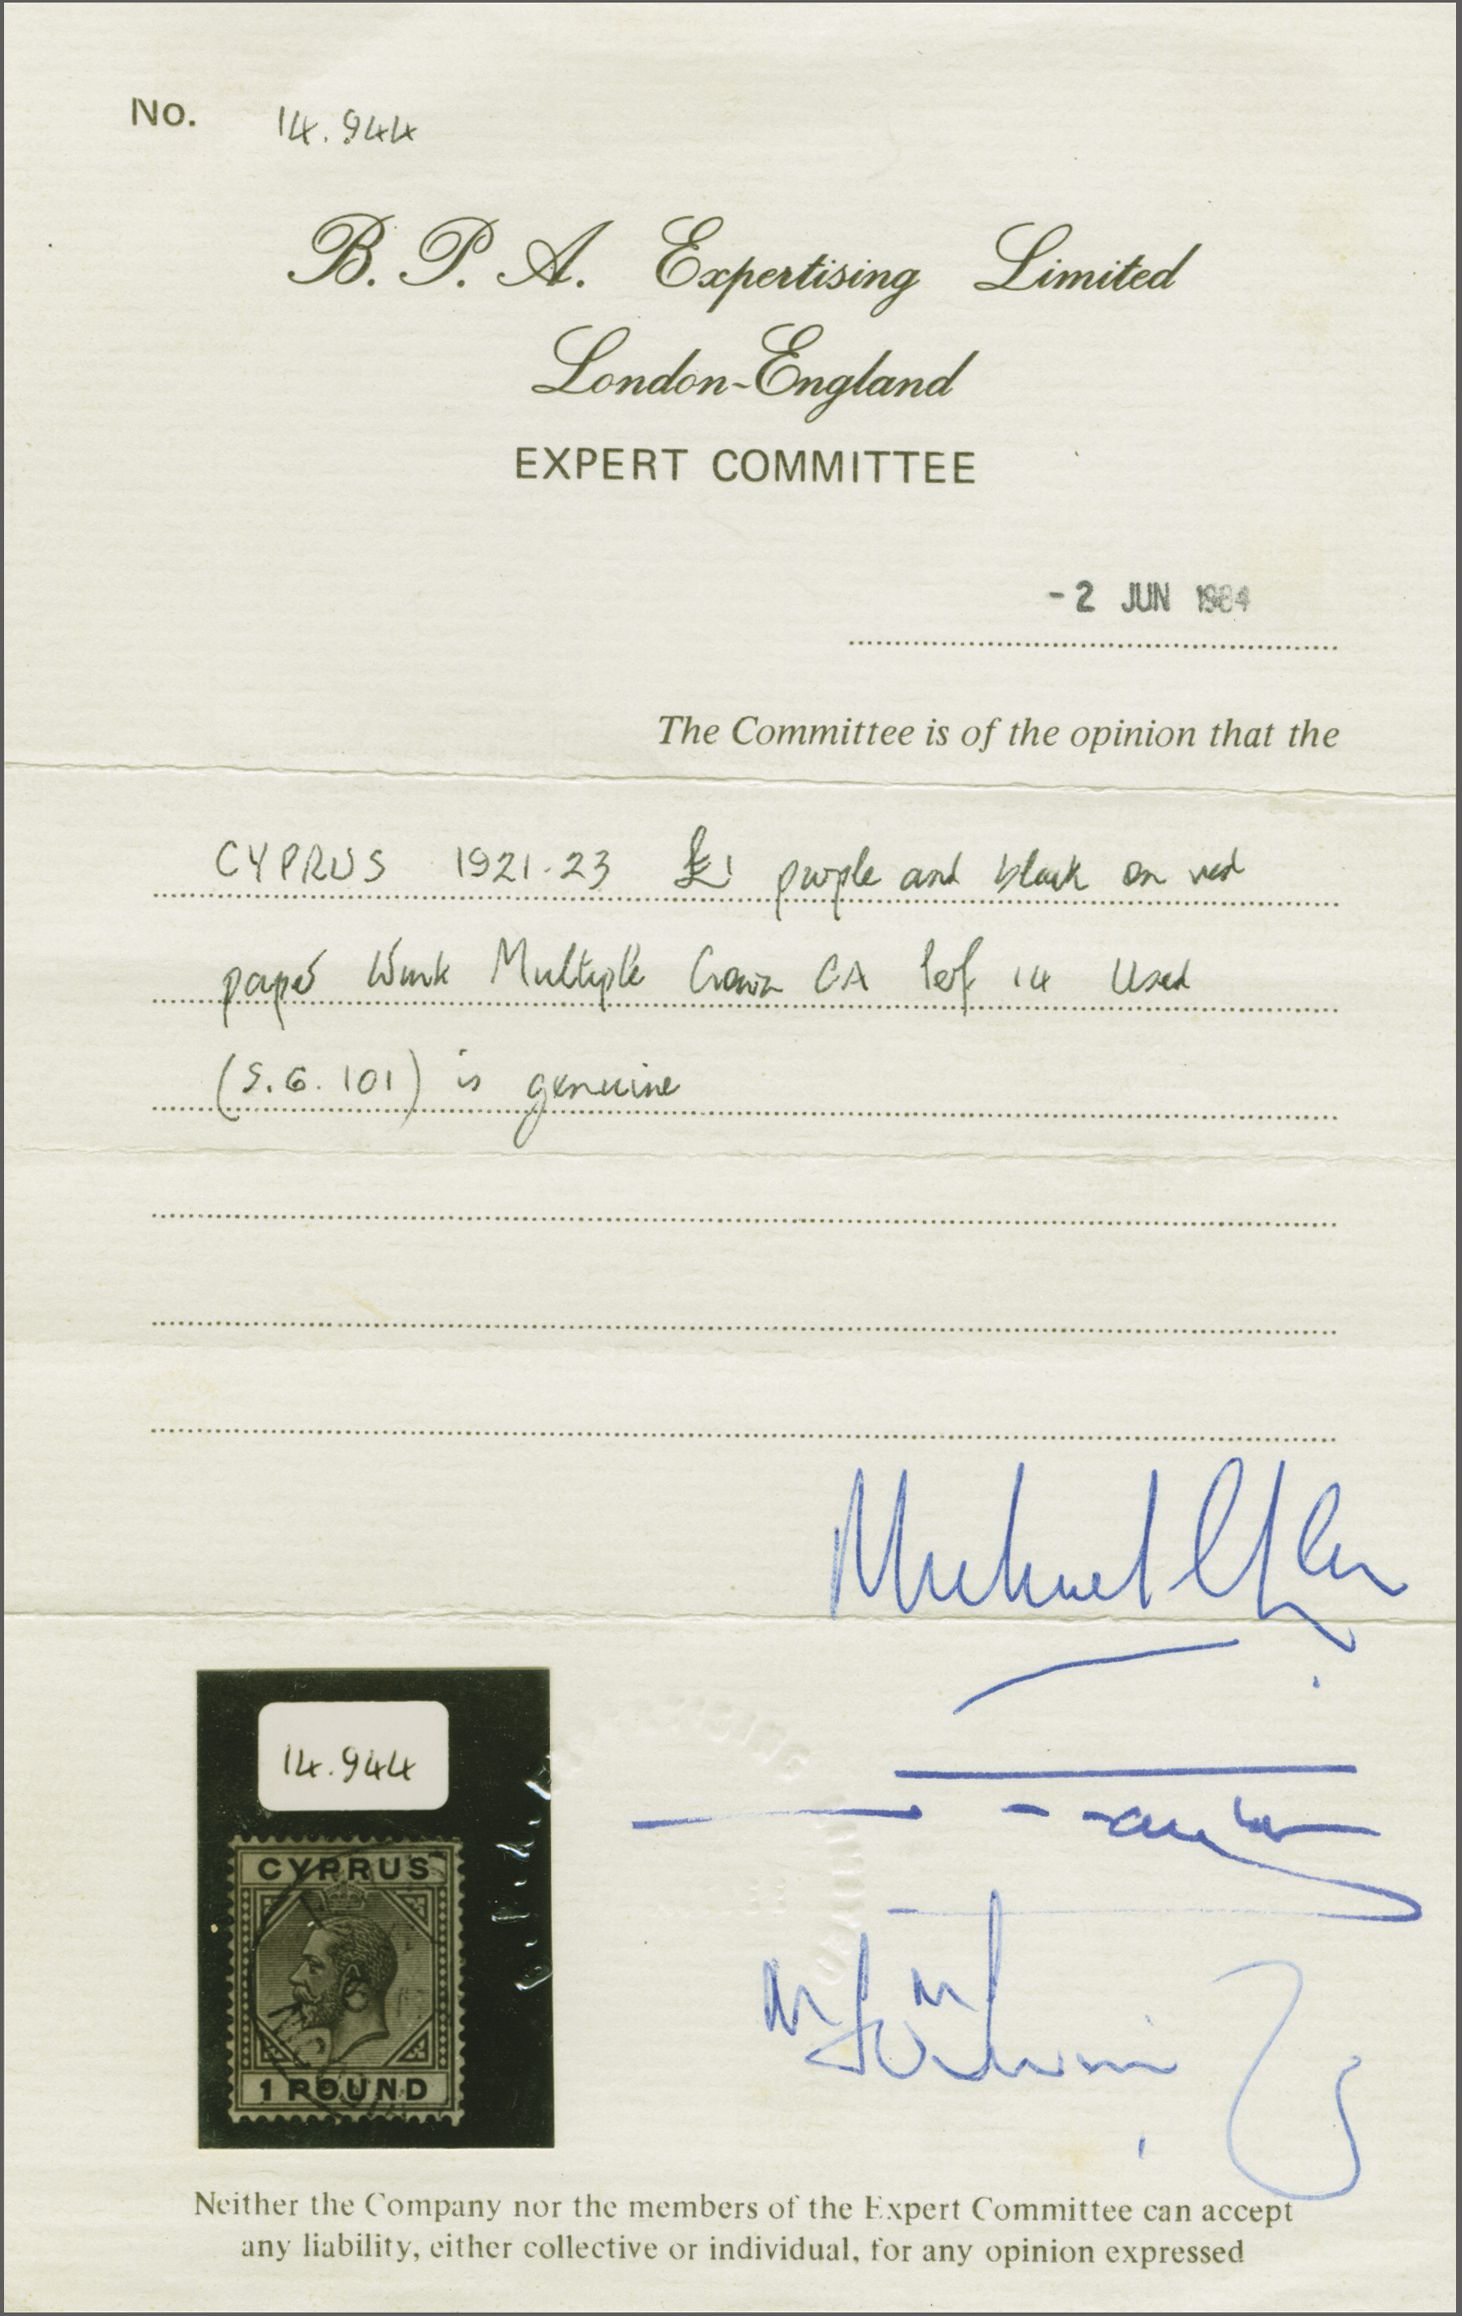 No. 14.944
B. P. A. Expertising Limited
London-England
EXPERT COMMITTEE
-2 JUN 1984
The Committee is of the opinion that the
CYPRUS 1921-23 £1 purple and black on red
paper Wmk Multiple Crown CA Perf 14 Used
(S.G. 101) is genuine
Michael
14.944
CYPRUS
1 POUND
Neither the Company nor the members of the Expert Committee can accept
any liability, either collective or individual, for any opinion expressed